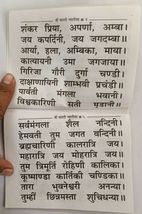 शंकर प्रिया, अपर्णा, अम्बा।
जय कपर्दिनी, जय जगदम्बा॥
आर्या, हला, अम्बिका, माया।
कात्यायनी उमा जगजाया॥
गिरिजा गौरी दुर्गा चण्डी।
दाक्षाणायिनी शाम्भवी प्रचंडी॥
पार्वती मंगला भवानी।
विश्वकारिणी सती मृडानी॥
सर्वमंगला शैल नन्दिनी।
हेमवती तुम जगत वन्दिनी॥
ब्रह्मचारिणी कालरात्रि जय।
महारात्रि जय मोहरात्रि जय॥
तुम त्रिमूर्ति रोहिणी कालिका।
कूष्माण्डा कार्तिकी चण्डिका॥
तारा भुवनेश्वरी अनन्या।
तुम्हीं छिन्नमस्ता शुचिधन्या॥